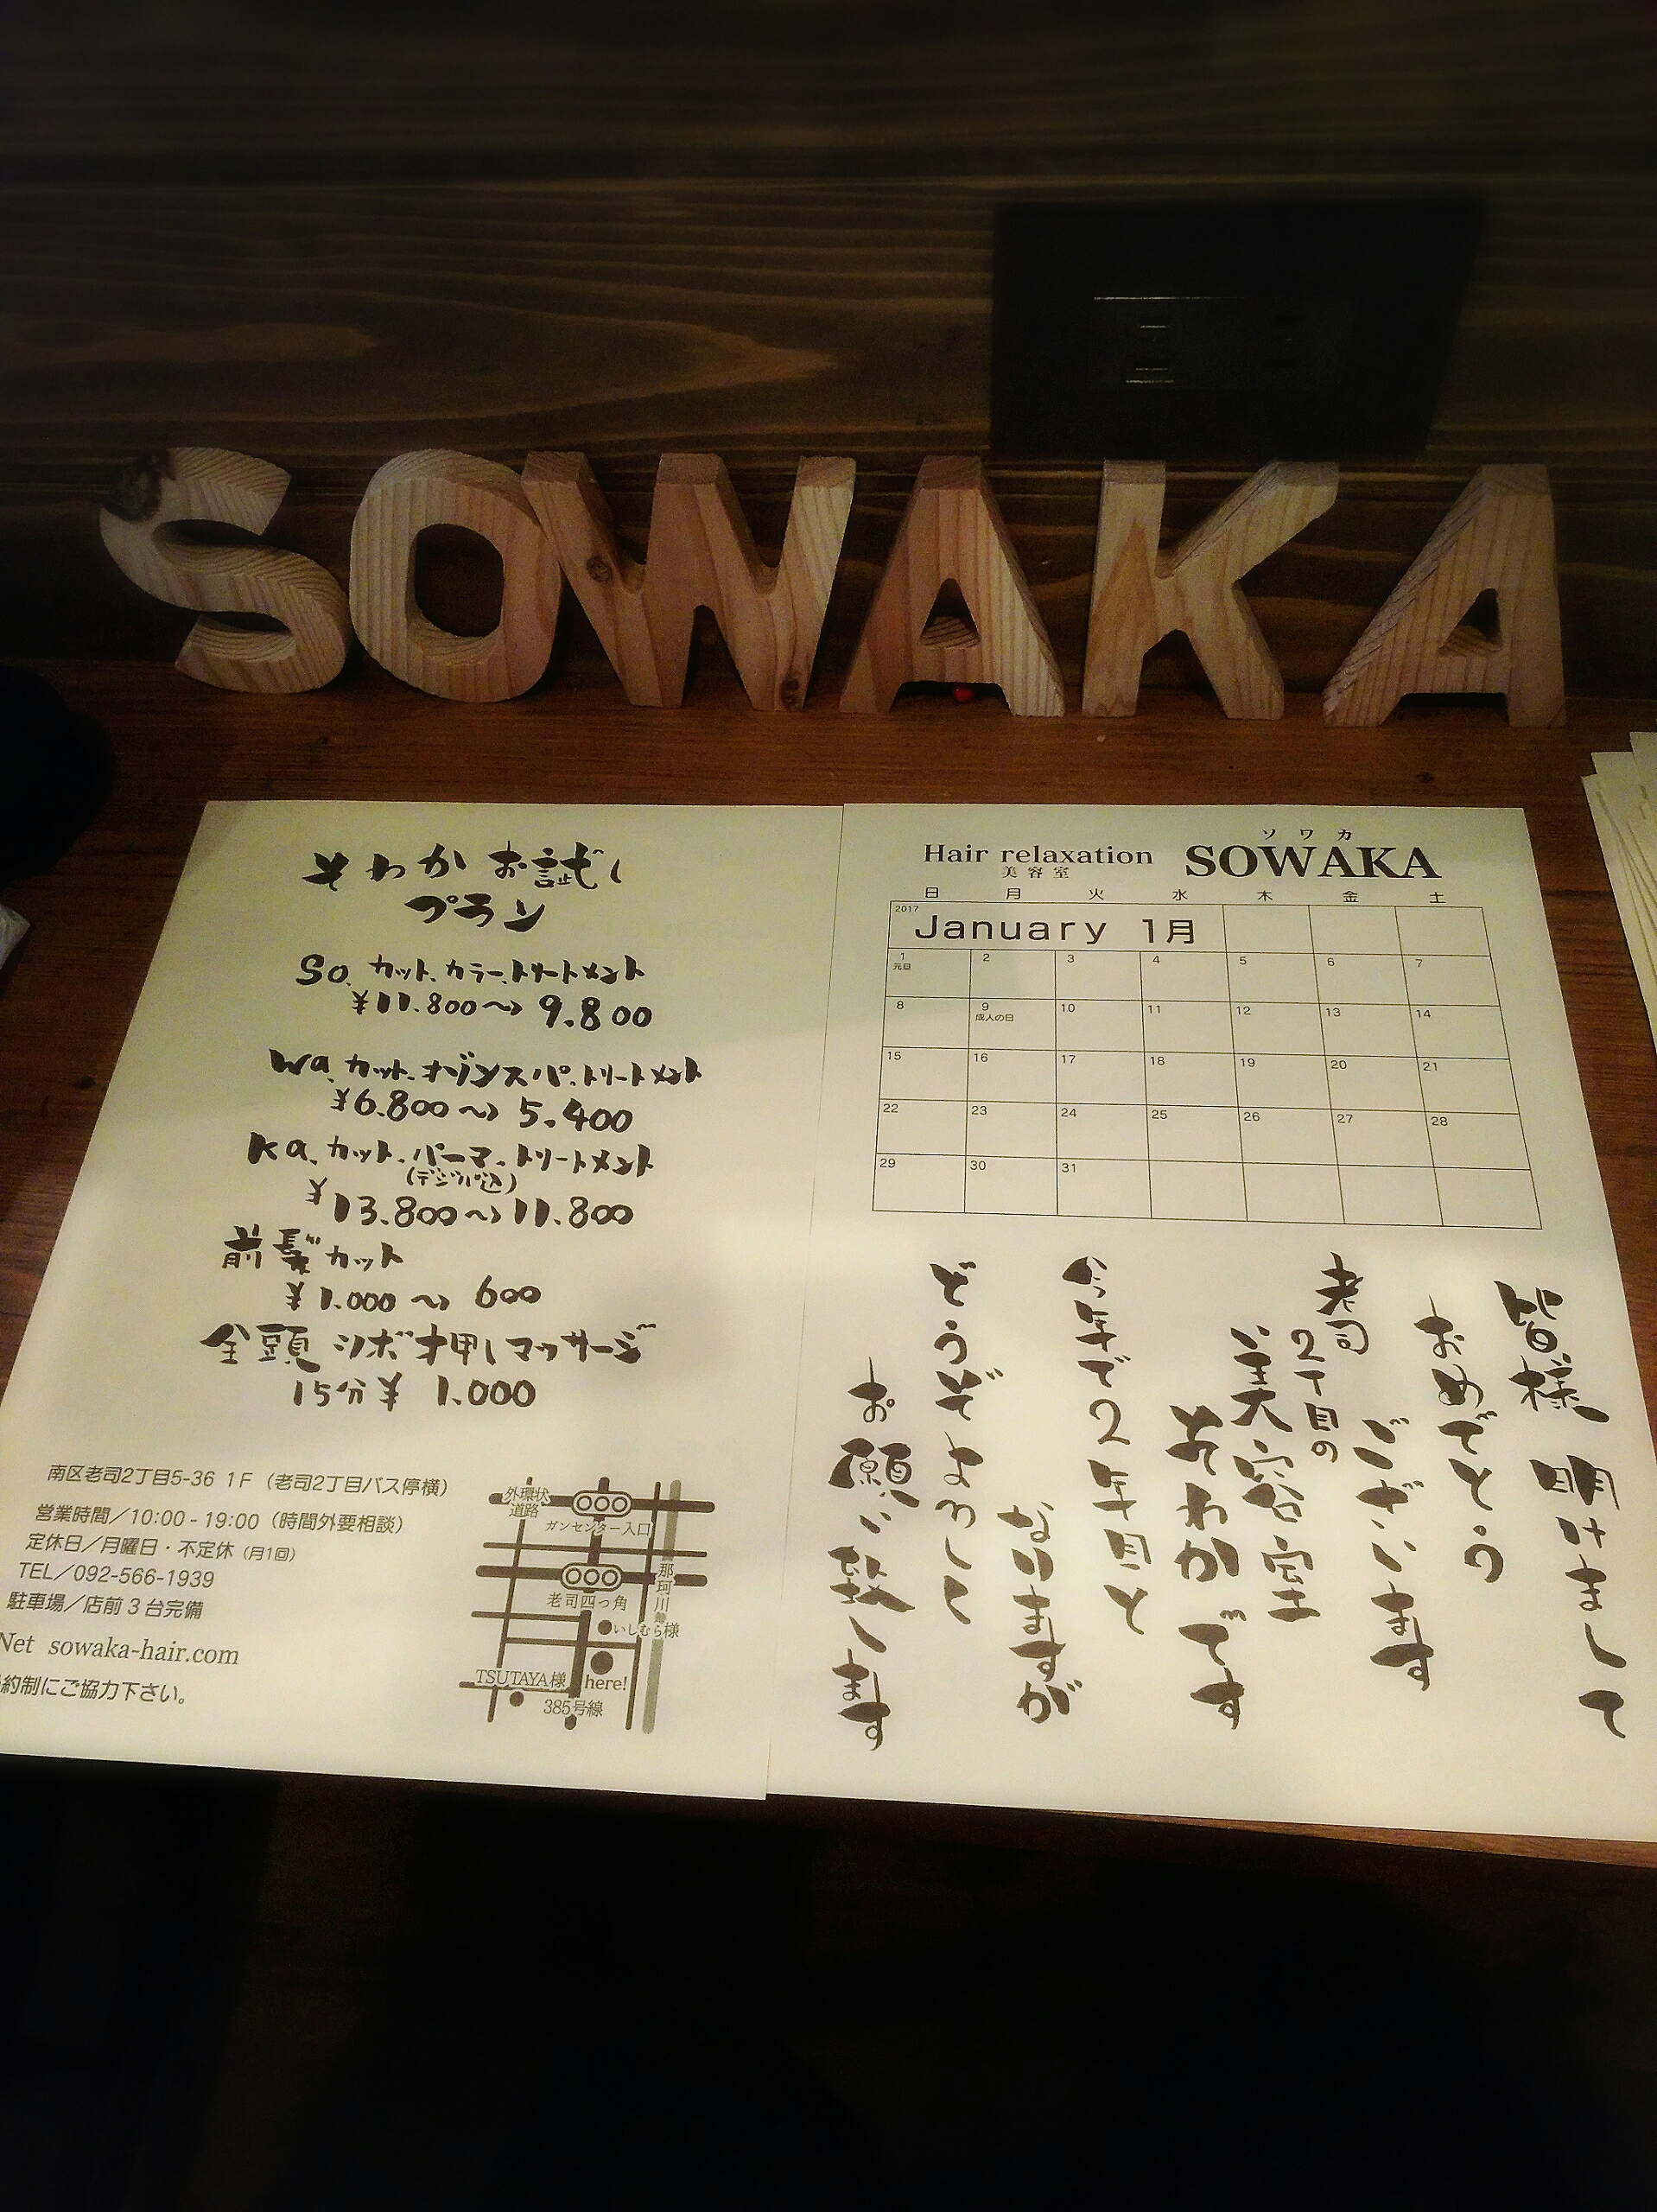 SOWAKA
そわか お試し
プラン
So. カット.カラー.トリートメント
¥11.800〜→ 9.800
Wa. カット.オゾンスパ.トリートメント
¥6.800〜→ 5.400
Ka. カット.パーマ.トリートメント
(デジパ込)
¥13.800〜→11.800
前髪カット
¥1.000〜→ 600
全頭 ツボ押しマッサージ
15分¥ 1.000
南区老司2丁目5-36 1F（老司2丁目バス停横）
営業時間／10:00 - 19:00（時間外要相談）
定休日／月曜日・不定休（月1回）
TEL／092-566-1939
駐車場／店前3台完備
Net sowaka-hair.com
約制にご協力下さい。
外環状
道路
ガンセンター入口
那珂川
老司四つ角
いしむら様
TSUTAYA様
here!
385号線
ソワカ
Hair relaxation SOWAKA
美容室
日 月 火 水 木 金 土
2017
January 1月
1 2 3 4 5 6 7
元旦
8 9 10 11 12 13 14
成人の日
15 16 17 18 19 20 21
22 23 24 25 26 27 28
29 30 31
皆様 明けまして
おめでとう
ございます
老司
2丁目の
美容室
そわかです
今年で2年目と
なりますが
どうぞよろしく
お願い致します